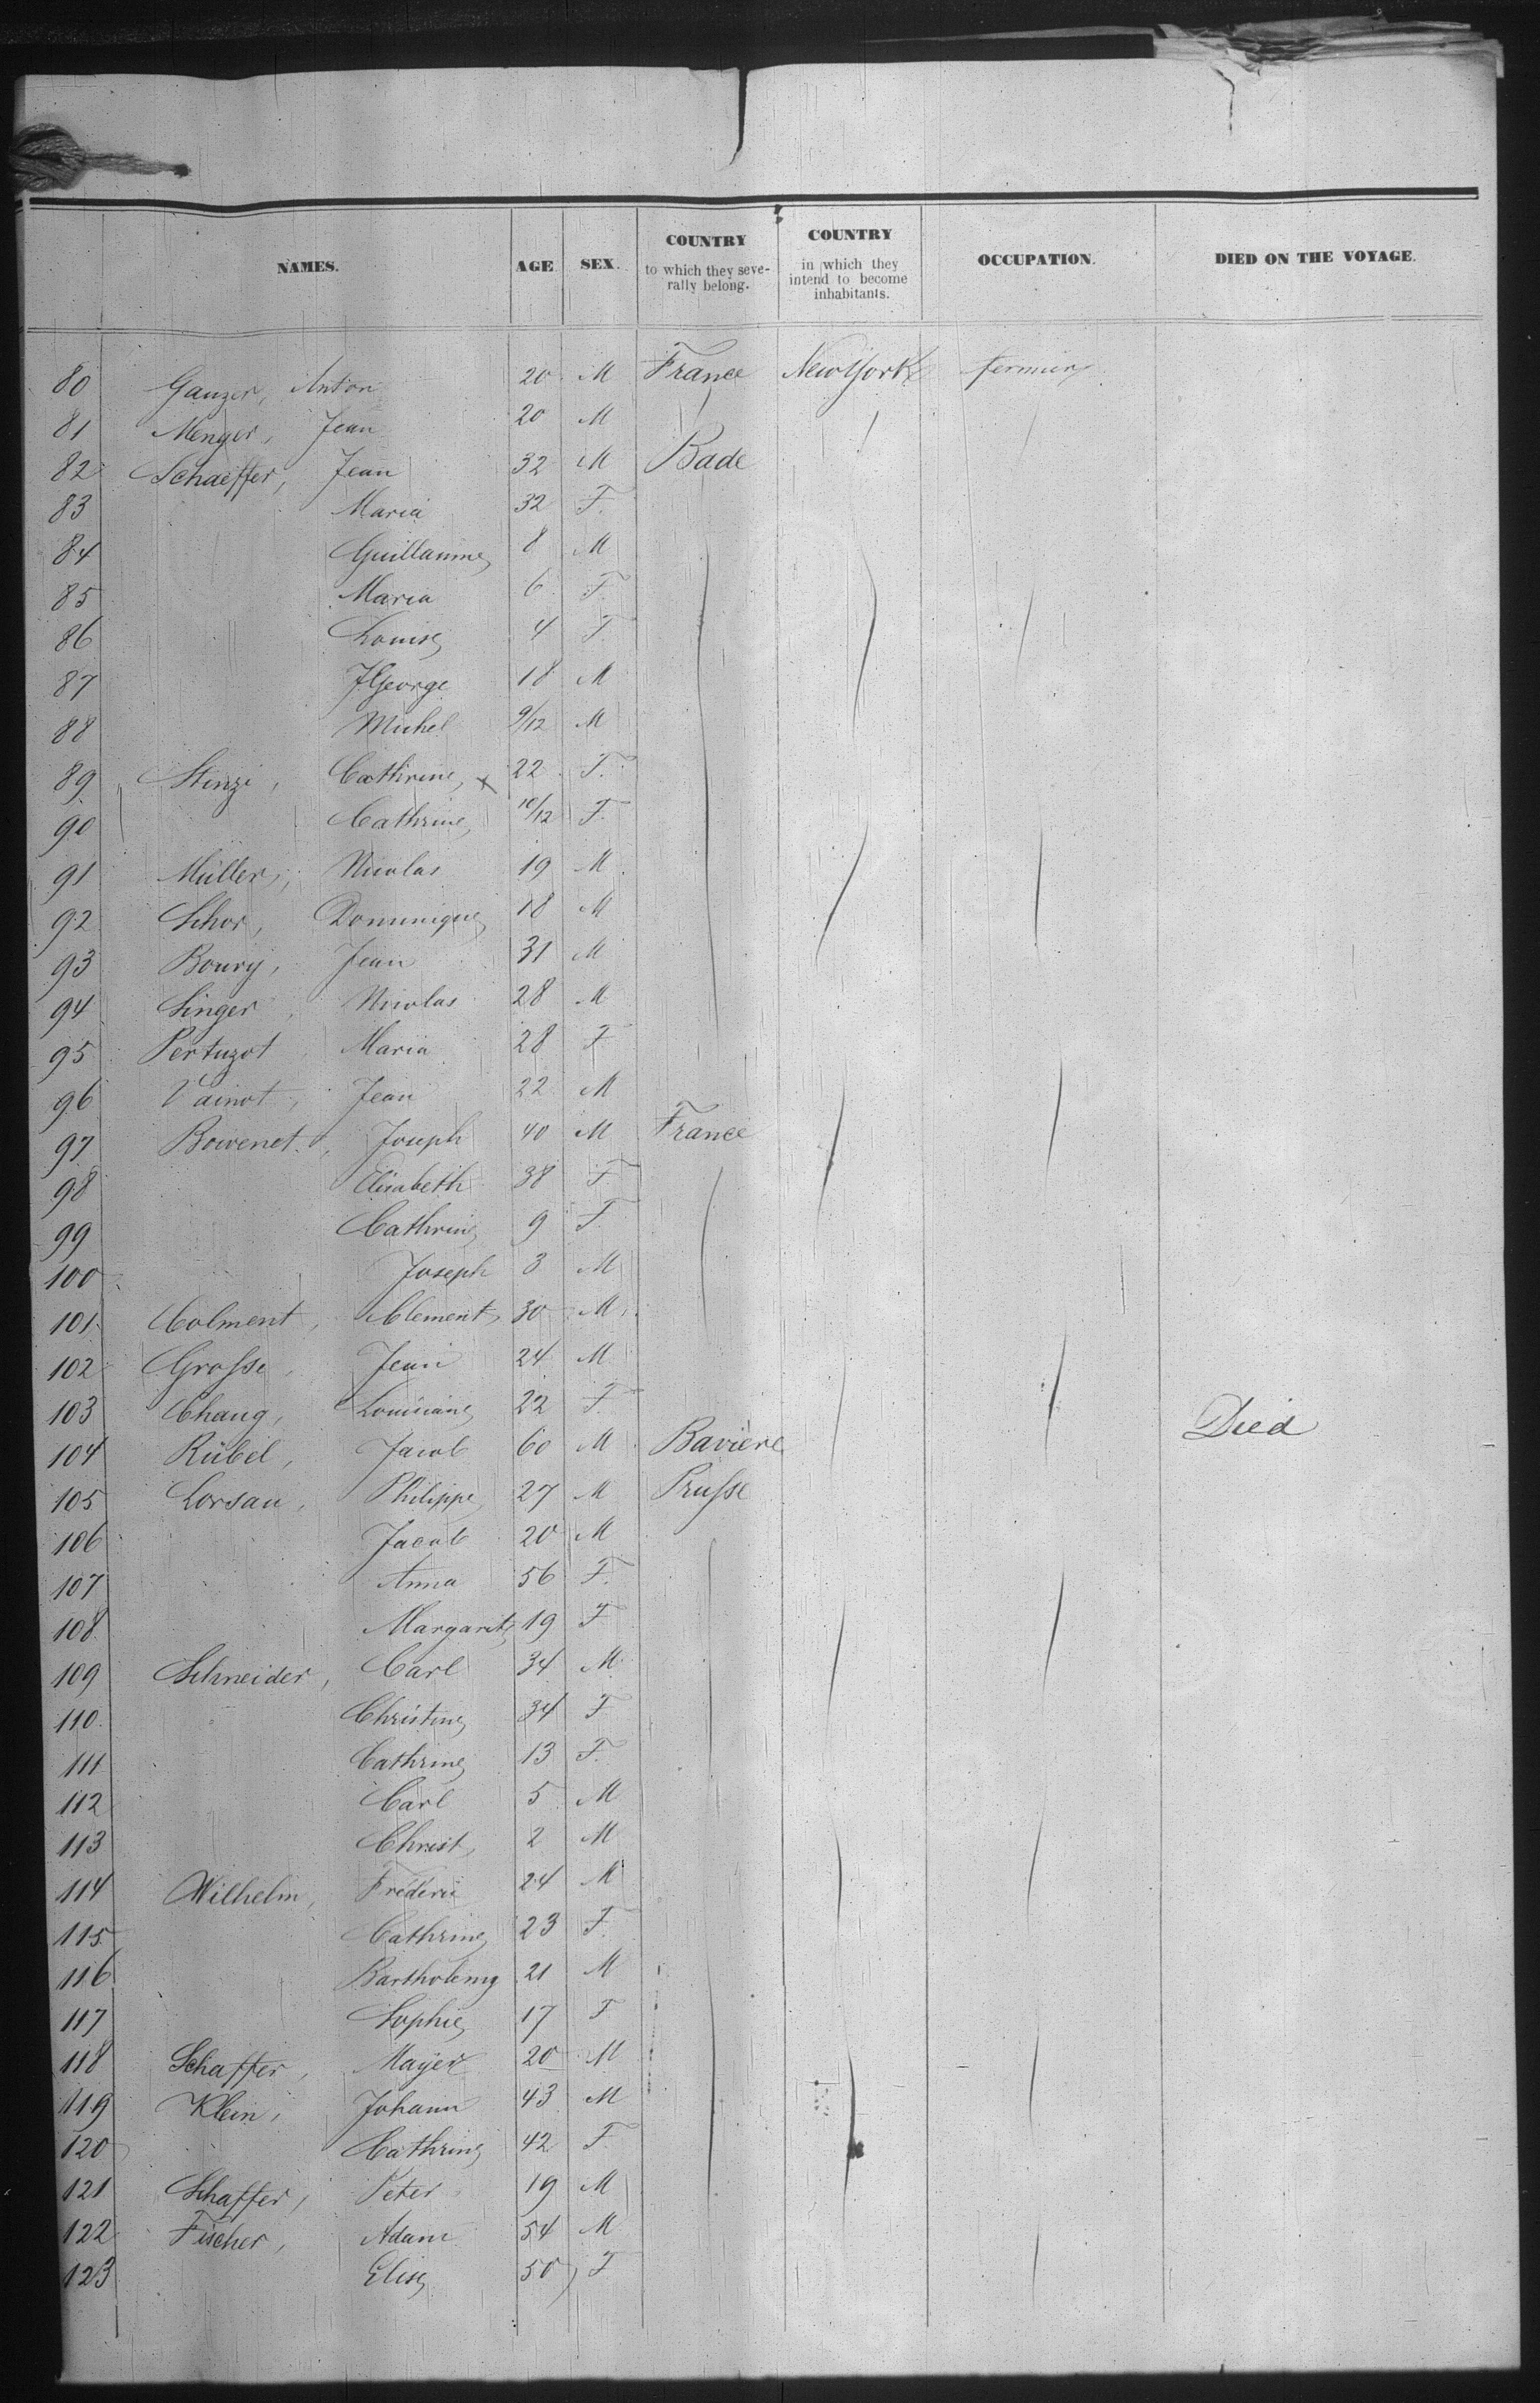 NAMES. AGE SEX. COUNTRY to which they severally belong. COUNTRY in which they intend to become inhabitants. OCCUPATION. DIED ON THE VOYAGE.
80 Ganzer, Anton 20 M France New York fermier
81 Menger, Jean 20 M
82 Schaeffer, Jean 32 M Bade
83 Maria 32 F.
84 Guillaume 8 M
85 Maria 6 F.
86 Louise 4 F.
87 J George 18 M
88 Michel 9/12 M
89 Stinzi, Cathrine x 22 F.
90 Cathrine 10/12 F.
91 Müller, Nicolas 19 M
92 Schor, Dominique 18 M
93 Boury, Jean 31 M
94 Singer, Nicolas 28 M
95 Pertuzot, Maria 28 F
96 Vainot, Jean 22 M
97 Bowenet, Joseph 40 M France
98 Elisabeth 38 F
99 Cathrine 9 F
100 Joseph 3 M
101 Colment, Clement 30 M
102 Grosse, Jean 24 M
103 Chaug, 22 F.
104 Rübel, Jacob 60 M Bavière Died
105 Lorsau, Philippe 27 M Prusse
106 Jacob 20 M
107 Anna 56 F.
108 Margarite 19 F
109 Schneider, Carl 34 M
110 Christine 34 F
111 Cathrine 13 F.
112 Carl 5 M
113 Christ 2 M
114 Wilhelm, Frederic 24 M
115 Cathrine 23 F.
116 Bartholemy 21 M
117 Sophie 17 F
118 Schaffer, Mayer 20 M
119 Klein, Johann 43 M
120 Cathrine 42 F.
121 Schaffer, Peter 19 M
122 Fischer, Adam 54 M
123 Elise 50 F